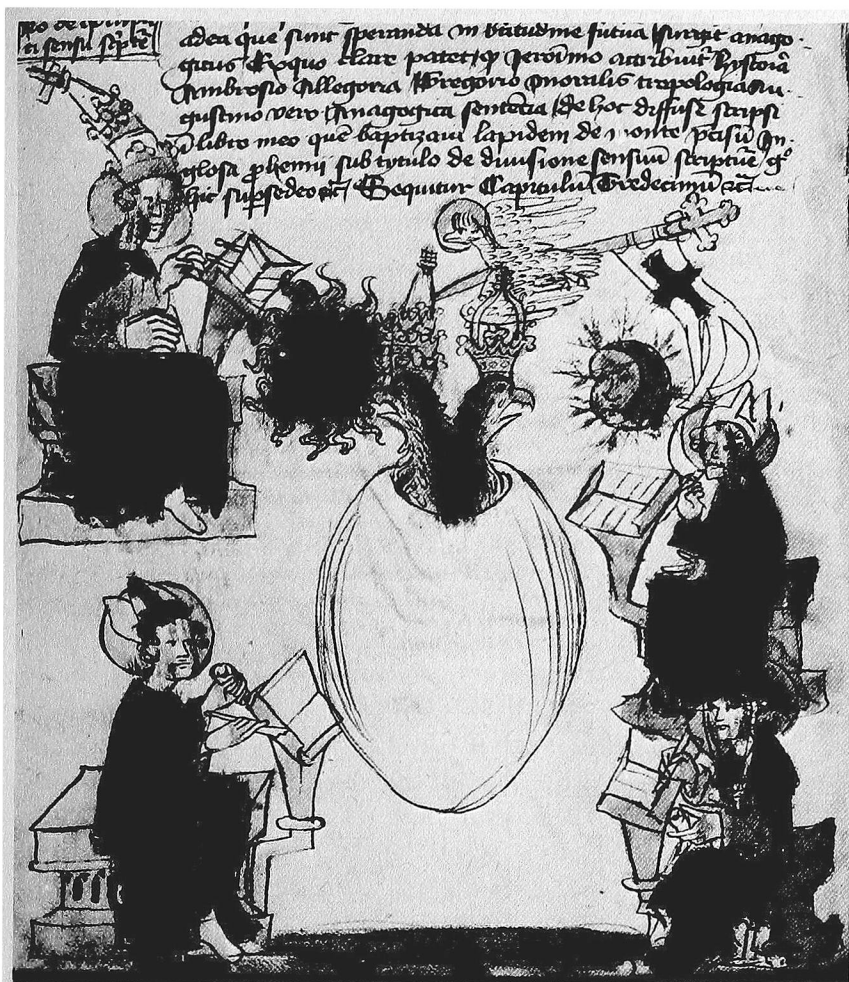 ti sensu
adea que sunt speranda in btitudine futura surgit anago
gicus Exquo clare patet q Jeronimo attribuit hystoria
Ambrosio Allegoria Gregorio moralis tropologia Au
gustino vero Anagogica sentencia de hoc diffuse scripsi
libro meo que baptizaui lapidem de monte
glosa phemii sub tytulo de diuisione sensuum
hic supsedeo Sequitur Capitulum Tredecimum